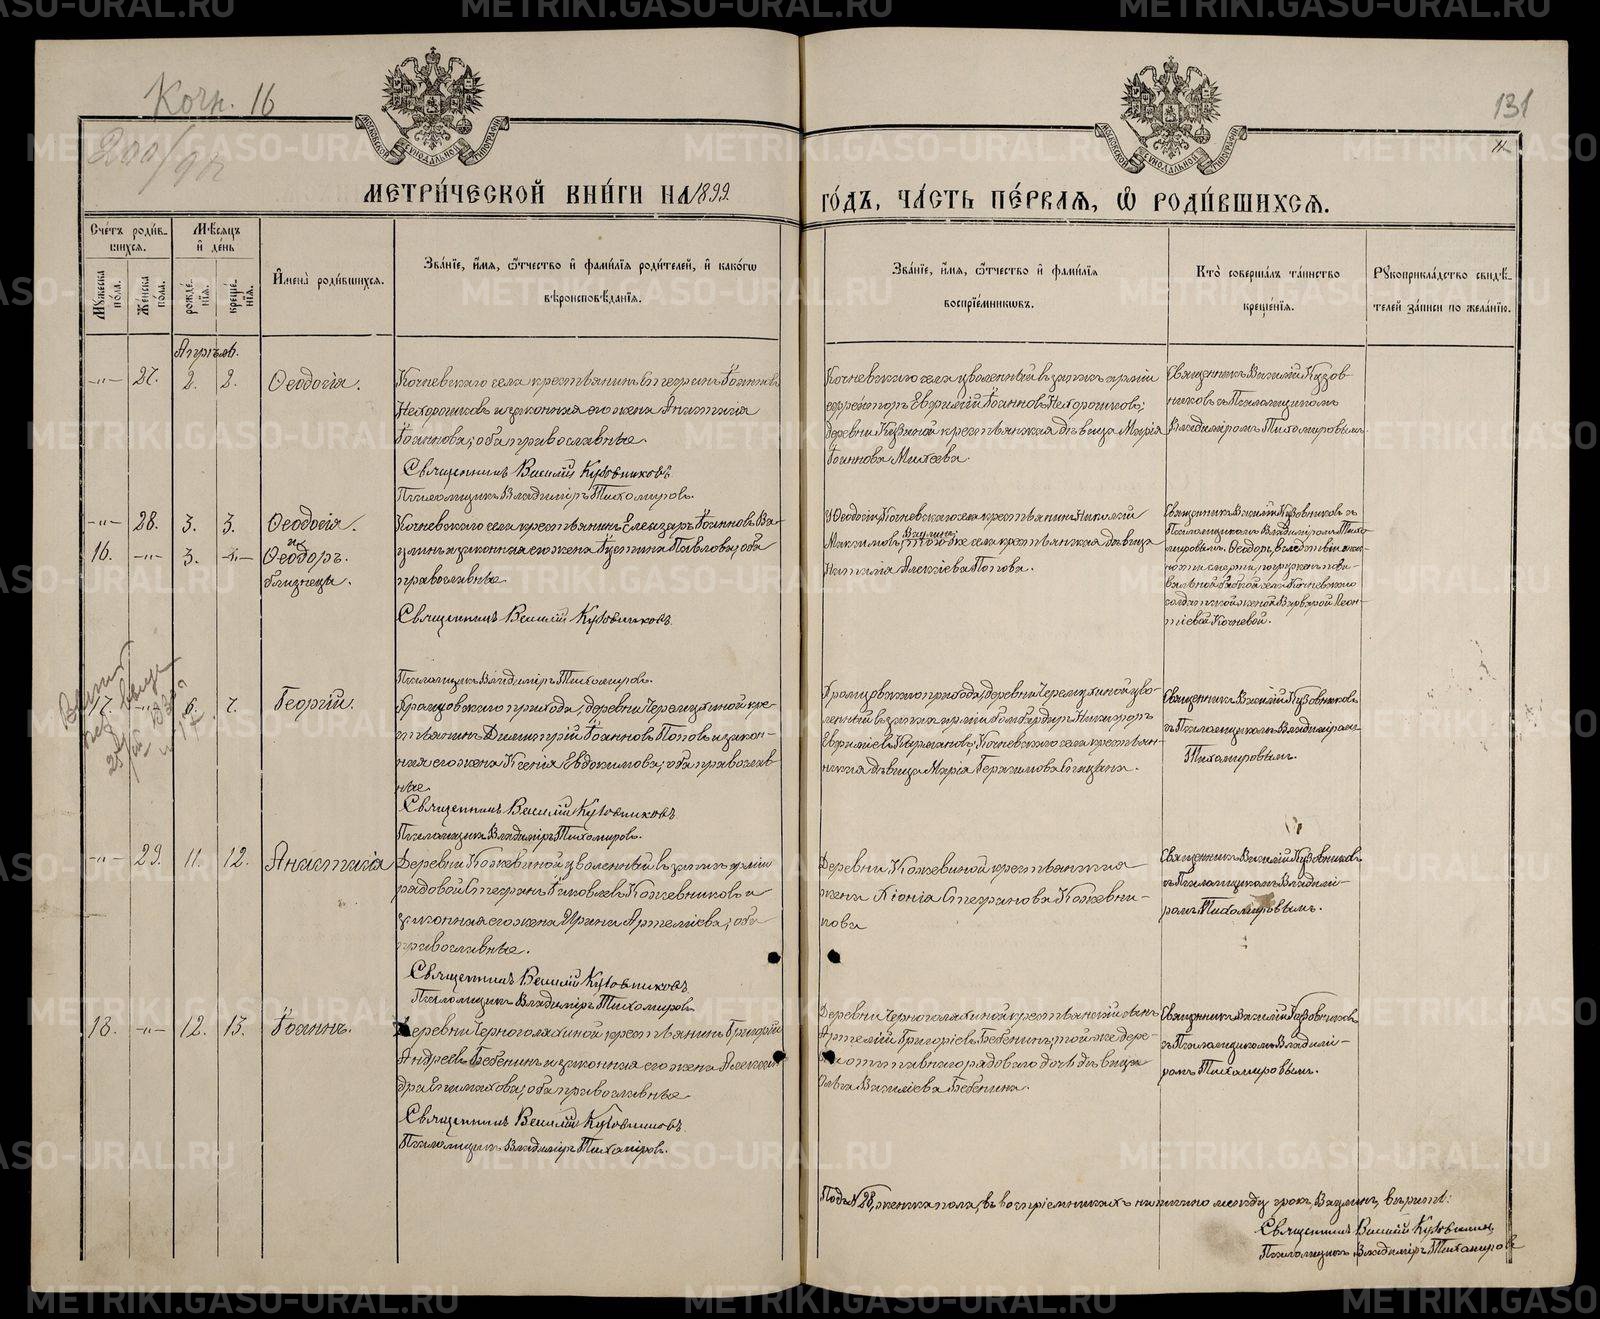 Кочн. 16
131
200/97
МЕТРИ́ЧЕСКОЙ КНИ́ГИ НА 1899
ГО́ДЪ, ЧА́СТЬ ПЕ́РВАЯ, Ѿ РОДИ́ВШИХСЯ.
Сче́тъ роди́вшихся.
Мѣ́сяцъ и де́нь
Мꙋжеска по́ла.
Же́нска по́ла.
рожде́нїя.
креще́нїя.
И҆мена̀ роди́вшихся.
Зва́нїе, и҆́мя, ѻ҆́тчество и҆ фами́лїя роди́телей, и҆ како́гѡ вѣроисповѣ́данїя.
Зва́нїе, и҆́мя, ѻ҆́тчество и҆ фами́лїя воспрїе́мникѡвъ.
Кто̀ соверша́лъ та́инство креще́нїя.
Рꙋкоприкла́дство свидѣ́телей за́писи по жела́нїю.
Апрѣль.
-"- 27. 2. 2. Ѳеодосія.
Кочневскаго села крестьянинъ Стефанъ Іоанновъ
Нехорошковъ и законная его жена Анастасія
Іоаннова; оба православные.
Священникъ Василій Кузовниковъ
Псаломщикъ Владиміръ Тихомировъ.
Кочневскаго села уволенный въ запасъ арміи
ефрейторъ Евфимій Іоанновъ Нехорошковъ;
деревни Казиной крестьянская дѣвица Марія
Іоаннова Михеева.
Священникъ Василій Кузов-
никовъ съ Псаломщикомъ
Владиміромъ Тихомировымъ.
-"- 28. 3. 3. Ѳеодосія.
16. -"- 3. -"- Ѳеодоръ.
близнецы.
Кочневскаго села крестьянинъ Елеазаръ Іоанновъ Ва-
улинъ и законная его жена Іустина Павлова; оба
православные.
Священникъ Василій Кузовниковъ.
Псаломщикъ Владиміръ Тихомировъ.
У Ѳеодосіи Кочневскаго села крестьянинъ Николай
Максимовъ Ваулинъ; того же села крестьянская дѣвица
Наталія Алексіева Попова.
Священникъ Василій Кузовниковъ съ
Псаломщикомъ Владиміромъ Тихо-
мировымъ. Ѳеодоръ, вслѣдствіи опас-
ности смерти, погруженъ пови-
вальной бабкой села Кочневскаго
солдатской женой Варварой Леон-
тіевой Кочневой.
17. -"- 6. 7. Георгій.
Храмцовскаго прихода, деревни Черемхиной кре-
стьянинъ Димитрій Іоанновъ Поповъ и закон-
ная его жена Ксенія Евдокимова; оба православ-
ные.
Священникъ Василій Кузовниковъ
Псаломщикъ Владиміръ Тихомировъ.
Храмцовскаго прихода, деревни Черемхиной уво-
ленный въ запасъ арміи бомбардиръ Никифоръ
Евфиміевъ; Кочневскаго села крестьян-
ская дѣвица Марія Герасимова Спицына.
Священникъ Василій Кузовниковъ
съ Псаломщикомъ Владиміромъ
Тихомировымъ.
-"- 29. 11. 12. Анастасія
Деревни Кожевиной уволенный въ запасъ арміи
рядовой Стефанъ Іаковлевъ Кожевниковъ и
законная его жена Ирина Артеміева; оба
православные.
Священникъ Василій Кузовниковъ
Псаломщикъ Владиміръ Тихомировъ
Деревни Кожевиной крестьянская
жена Хіонія Стефанова Кожевни-
кова
Священникъ Василій Кузовниковъ
съ Псаломщикомъ Владимі-
ромъ Тихомировымъ.
18. -"- 12. 13. Іоаннъ.
Деревни Черноголазкиной крестьянинъ Григорій
Андреевъ Бебенинъ и законная его жена Алексан-
дра Епимахова; оба православные.
Священникъ Василій Кузовниковъ.
Псаломщикъ Владиміръ Тихомировъ.
Деревни Черноголазкиной крестьянскій сынъ
Артемій Григоріевъ Бебенинъ; той же дере-
вни отставнаго рядоваго дочь дѣвица
Ольга Василіева Бебенина.
Священникъ Василій Кузовниковъ
съ Псаломщикомъ Владимі-
ромъ Тихомировымъ.
Подъ № 28, женска пола, въ воспріемникахъ написано между строкъ "Ваулинъ" вѣрить:
Священникъ Василій Кузовниковъ
Псаломщикъ Владиміръ Тихомировъ
METRIKI.GASO-URAL.RU